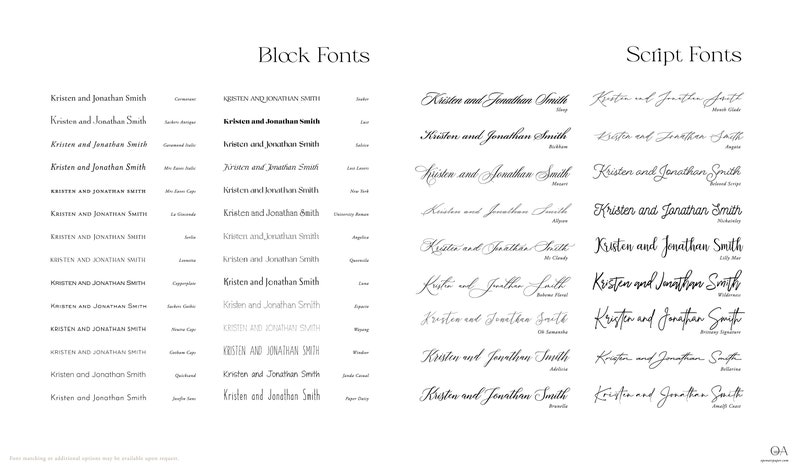 Block Fonts
Kristen and Jonathan Smith Cormorant
Kristen and Jonathan Smith Sackers Antique
Kristen and Jonathan Smith Garamond Italic
Kristen and Jonathan Smith Mrs Eaves Italic
KRISTEN AND JONATHAN SMITH Mrs Eaves Caps
KRISTEN AND JONATHAN SMITH La Gioconda
KRISTEN AND JONATHAN SMITH Serlio
KRISTEN AND JONATHAN SMITH
KRISTEN AND JONATHAN SMITH Copperplate
KRISTEN AND JONATHAN SMITH Sackers Gothic
KRISTEN AND JONATHAN SMITH Neutra Caps
KRISTEN AND JONATHAN SMITH Gotham Caps
Kristen and Jonathan Smith Quicksand
Kristen and Jonathan Smith Josefin Sans
KRISTEN AND JONATHAN SMITH
Kristen and Jonathan Smith
Kristen and Jonathan Smith
Kristen and Jonathan Smith Lost Lovers
Kristen and Jonathan Smith New York
Kristen and Jonathan Smith University Roman
Kristen and Jonathan Smith Angelica
Kristen and Jonathan Smith Queensila
Kristen and Jonathan Smith Luna
Kristen and Jonathan Smith Espacio
KRISTEN AND JONATHAN SMITH Wayang
KRISTEN AND JONATHAN SMITH Windsor
Kristen and Jonathan Smith Janda Casual
Kristen and Jonathan Smith Paper Daisy
Script Fonts
Kristen and Jonathan Smith
Sloop
Kristen and Jonathan Smith
Bickham
Kristen and Jonathan Smith
Mozart
Kristen and Jonathan Smith
Allyson
Kristen and Jonathan Smith
Mc Cloudy
Kristen and Jonathan Smith
Boheme Floral
Kristen and Jonathan Smith
Oh Samantha
Kristen and Jonathan Smith
Adelicia
Kristen and Jonathan Smith
Brunella
Kristen and Jonathan Smith
Month Glade
Kristen and Jonathan Smith
Angata
Kristen and Jonathan Smith
Beloved Script
Kristen and Jonathan Smith
Nickainley
Kristen and Jonathan Smith
Lilly Mae
Kristen and Jonathan Smith
Wilderness
Kristen and Jonathan Smith
Brittany Signature
Kristen and Jonathan Smith
Bellarina
Kristen and Jonathan Smith
Amalfi Coast
Font matching or additional options may be available upon request.